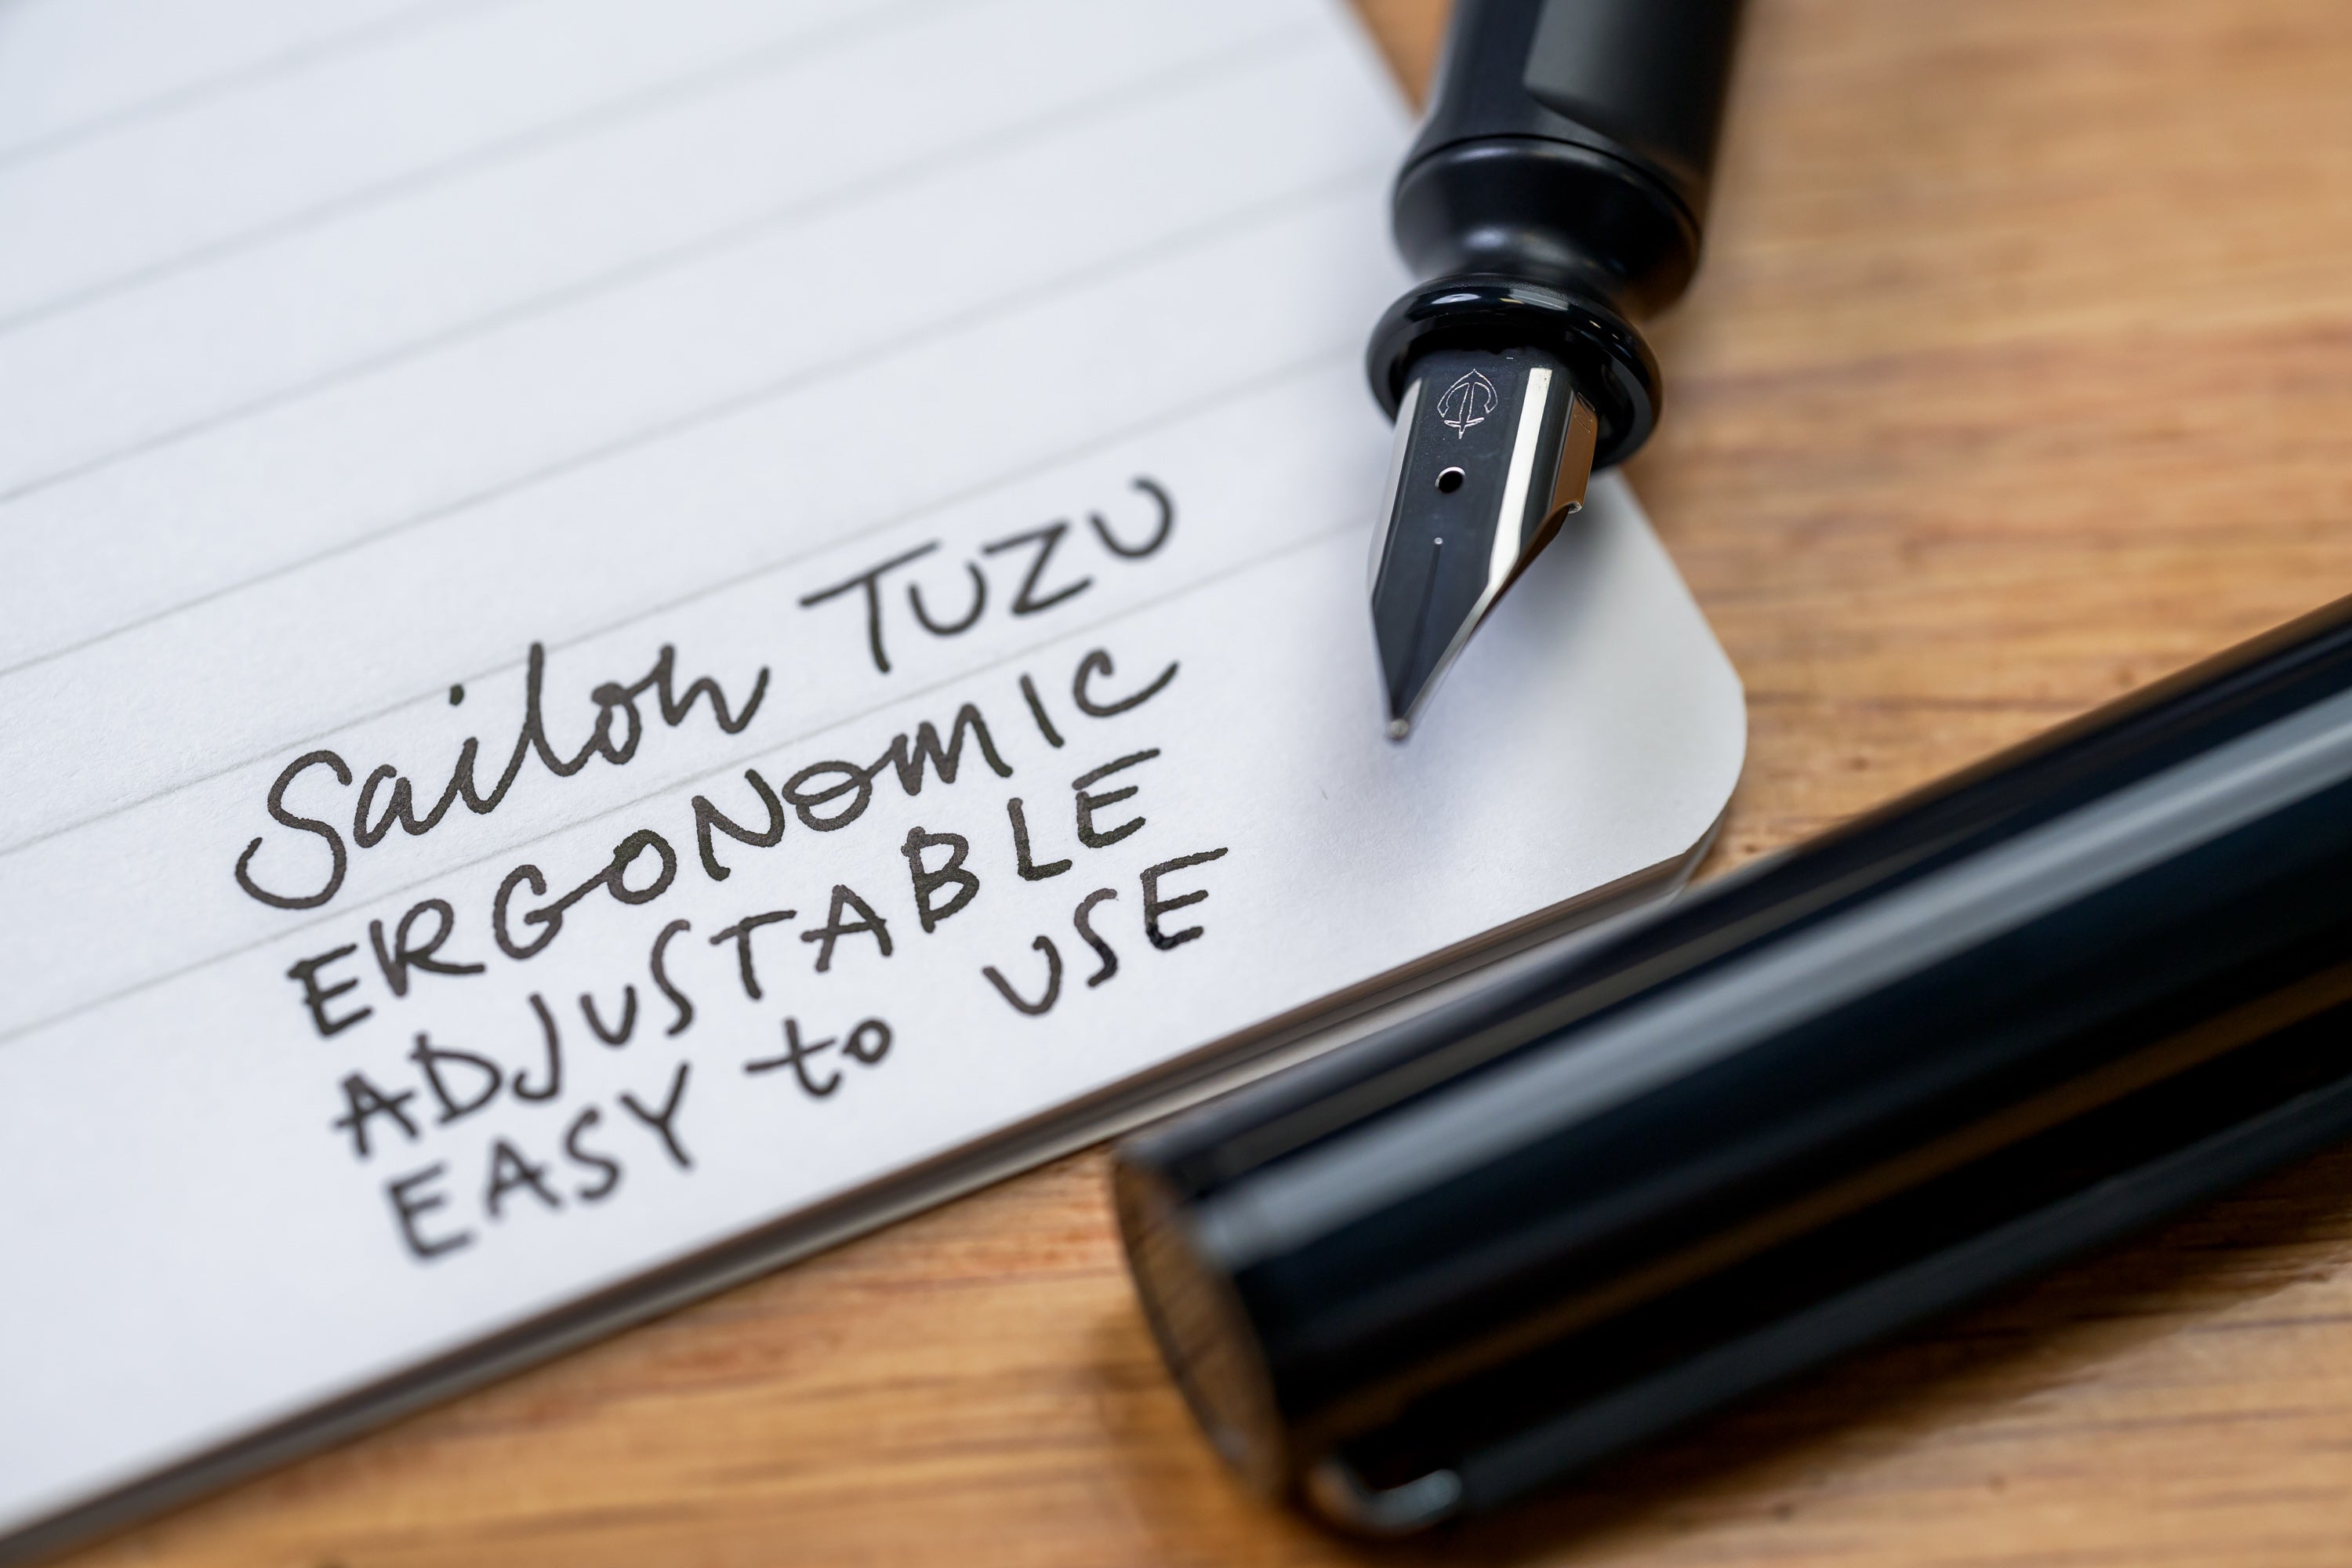 Sailor TUZU
ERGONOMIC
ADJUSTABLE
EASY to USE